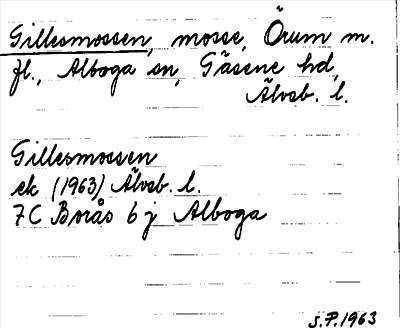 Gillesmossen, mosse, Örum m.
fl., Alboga sn, Gäsene hd,
Älvsb. l.
Gillesmossen
ek (1963) Älvsb. l.
7C Borås 6 j Alboga
S.P. 1963